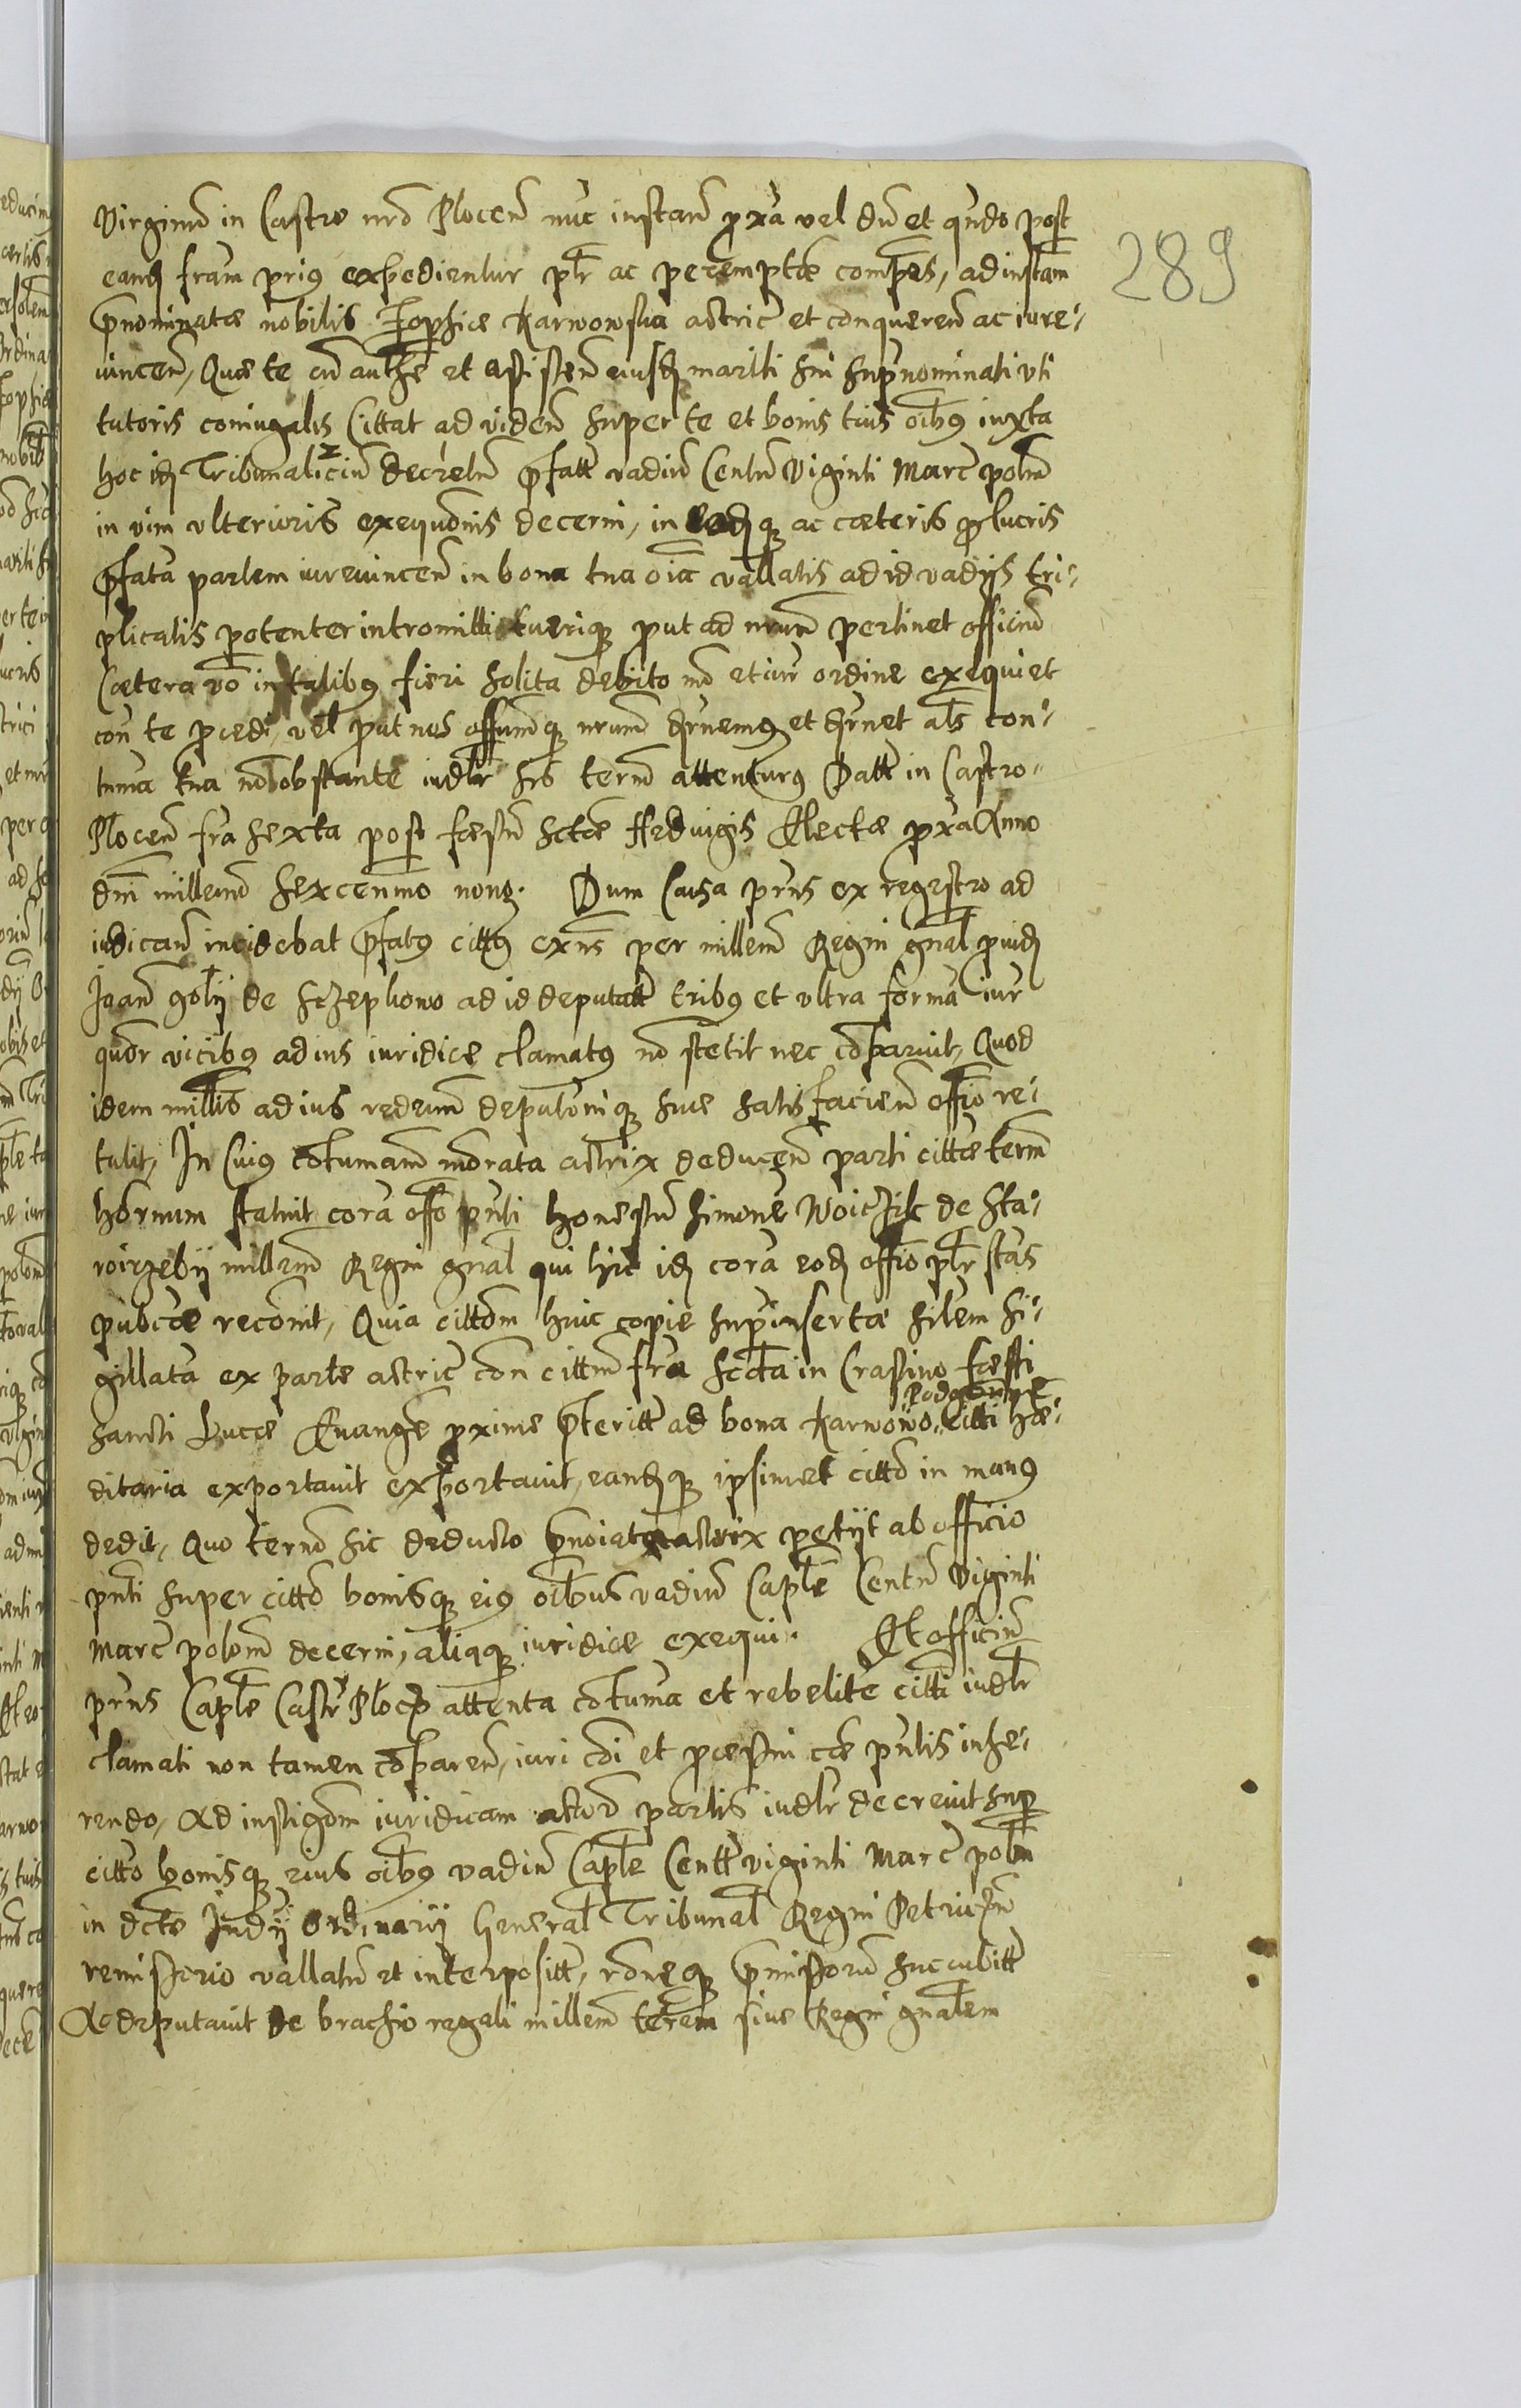 289
Virginum in Castro nro Plocen nuc instan prxa vel du et qndo post
eand fram prius expedientur plr ac peremptae compres, ad instam
pnominatae nobilis Zophiae Karwowska actric et conqueren ac iure-
vincen, Quae te cu authe et assisten eiusd maritti sui supnominati uti
tutoris coniugalis Cittat ad viden super te et bonis tuis oibus iuxta
hoc id Tribunalicium decretum pfatt vadium Centum Viginti Marc polm
in vim ulterioris exequonis decerni, in eadque ac caeteris lucris
pfata partem iurevincen in bona tua oia vallatis ad id vadijs tri-
plicatis potenter intromitti tuerique put ad nrum pertinet officium
Caetera vo in talibus fieri solita debito mo et iur ordine exequi et
con te pcedi, vel put nos offumque nrum et als con-
tuma tua no obstante iudlr sis term attenturus Datt in Castro
Plocen fra sexta post festum Sctae Hedvigis Electae prxa Anno
dni millemo sexcenmo nono. Dum Causa pns ex regestro ad
iudican incidebat pfatus cittus exns per millem Regni gnal puid
Joan golij de Sczephowo ad id deputatt tribus et ultra forma iur
quor vicibus ad ius iuridice clamatus no stetit nec coparuit, Quod
idem millis ad ius redeun deputonique suae satisfacien offio re-
tulit, In Cuius cotumam morata actrix deducen parti cittae term
hornum statuit cora offo pnti honestu Simone Woiczik de Sta-
roirzebij millem Regni gnal qui hic id cora eod offio plr stans
publce reconit, Quia cittom huic copie supinsertae silem si-
gillata ex parte actric con cittum fra scda in Crastino festi
Sancti Lucae Euange prxime pteritt ad bona Karwowo Podgorne Citti hae-
ditaria exportavit exportavit, eandque ipsimet citto in manus
dedit, Quo termo sic deducto pnoiata actrix petijt ab officio
pnti super citto bonisque eius oibus vadium Caple Centum Viginti
Marc polom decerni, aliaque iuridice exequi. Et officium
pns Caple Castr Ploc attenta cotuma et rebelite citti iudlr
clamati non tamen coparen, iuri coi et pcessui cae pntis inhe-
rendo, Ad instigom iuridicam actor partis iudlr decrevit sup
citto bonisque eius oibus vadium Caple Centt viginti Marc polm
in dcto Iudij Ordinarij General Tribunal Regni Petricon
remissorio vallatum et interpositt, roneque pmissoru succubitt
Ac deputavit de brachio regali millem terrem sive Regni gnalem